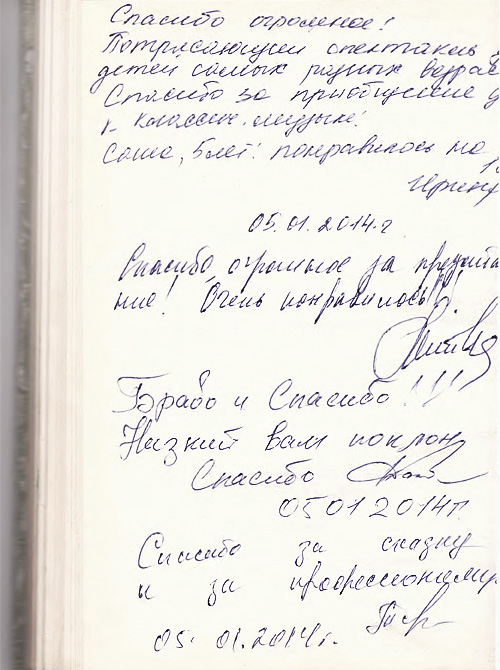 Спасибо огромное!
Потрясающий спектакль
детей самых разных возрас
Спасибо за приобщение
к классич. музыке!
Саша, 5 лет! понравилось
05.01.2014 г
Спасибо огромное за
ние! Очень понравилось!!
Браво и Спасибо!!!
Низкий вам поклон
Спасибо
05 01 2014 г.
Спасибо за сказку
и за профессионализ
05. 01.2014 г.